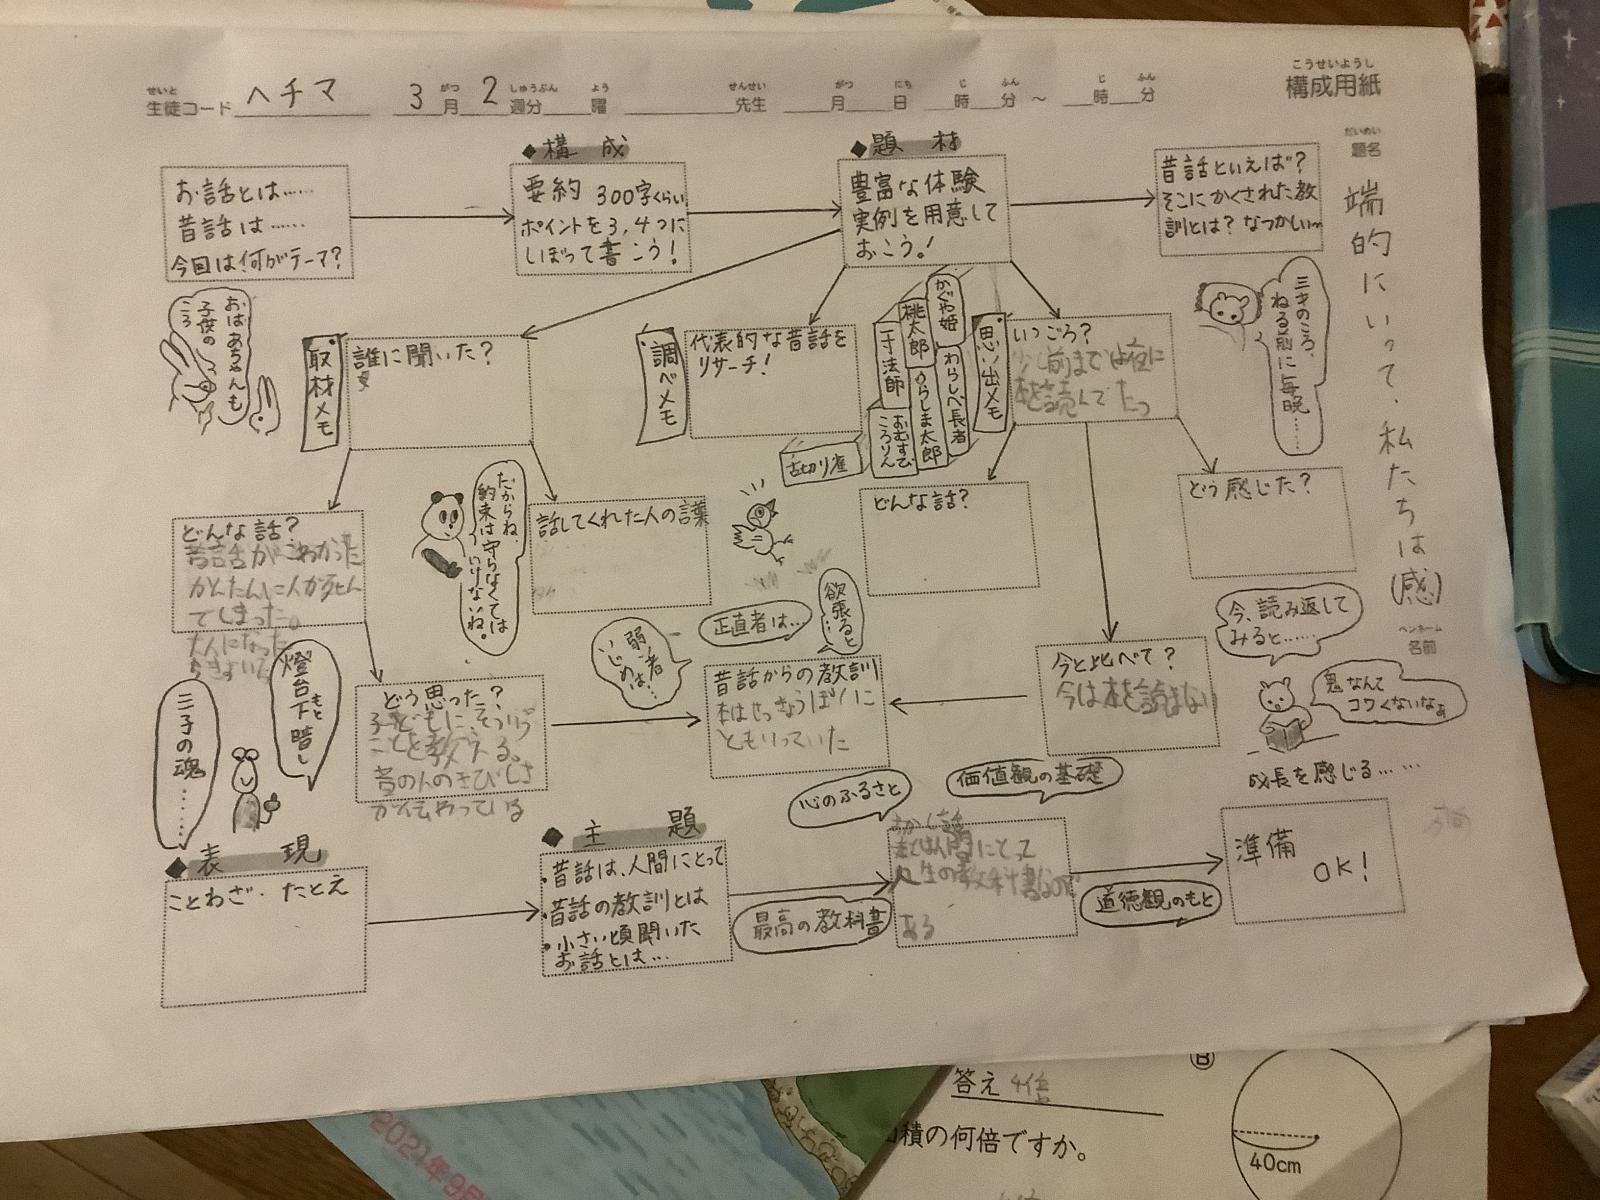 こうせいようし
構成用紙
せいと がつ しゅうぶん よう せんせい がつ にち じ ふん じ ふん
生徒コード ヘチマ 3月 2週分 曜 先生 月 日 時 分 ～ 時 分
だいめい
題名
端的にいって、私たちは(感)
ペンネーム
名前
お話とは……
昔話は……
今回は何がテーマ?
◆構 成
要約 300字くらい
ポイントを3,4つに
しぼって書こう!
◆題 材
豊富な体験
実例を用意して
おこう!
昔話といえば?
そこにかくされた教
訓とは? なつかしい〜
三才のころ、
ねる前に毎晩……
おばあちゃんも
子供の
ころ
取材メモ
誰に聞いた?
調べメモ
代表的な昔話を
リサーチ!
かぐや姫
桃太郎
一寸法師
わらしべ長者
うらしま太郎
おむすび
ころりん
舌切り雀
思い出メモ
いつごろ?
少し前までは夜に
本を読んでたっ
どんな話?
昔話がこわかった
かんたんに人が死ん
でしまった。
大人になった
だからね
約束は守らなくては
いけないね。
話してくれた人の言葉
どんな話?
どう感じた?
今、読み返して
みると……
鬼なんて
コワくないなぁ
成長を感じる……
三子の魂……
燈台下暗し
もと
どう思った?
子どもに、そういう
ことを教える。
昔の人のきびしさ
がんばって
弱い者
いじめは…
正直者は…
欲張ると…
昔話からの教訓
本はせっきょうぽくに
今と比べて?
今は本を読まない
心のふるさと
価値観の基礎
◆表 現
ことわざ・たとえ
◆主 題
・昔話は、人間にとって
・昔話の教訓とは
・小さい頃聞いた
お話とは…
最高の教科書
むかし話
本は人間にとって
人生の教科書なので
ある
道徳観のもと
準備
OK!
2021年9月
B
答え 4倍
積の何倍ですか。
40cm